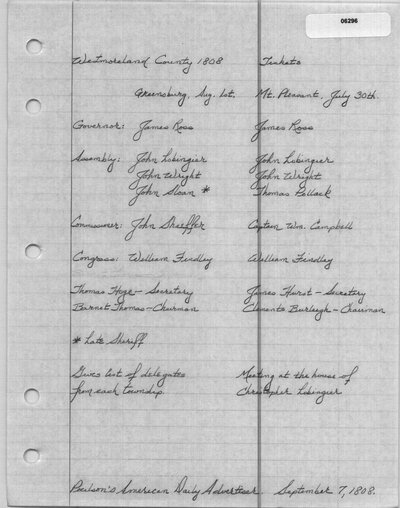 06296
Westmoreland County 1808 Tickets
Greensburg, Aug. 1st. Mt. Pleasant, July 30th.
Governor: James Ross James Ross
Assembly: John Lobingier John Lobingier
John Wright John Wright
John Sloan * Thomas Pollack
Commissioner: John Shaeffer Captain Wm. Campbell
Congress: William Findley William Findley
Thomas Hoge - Secretary James Hurst - Secretary
Barnet Thomas - Chairman Clements Burleigh - Chairman
* Late Sheriff
Gives list of delegates Meeting at the house of
from each township. Christopher Lobingier
Poulson's American Daily Advertiser. September 7, 1808.